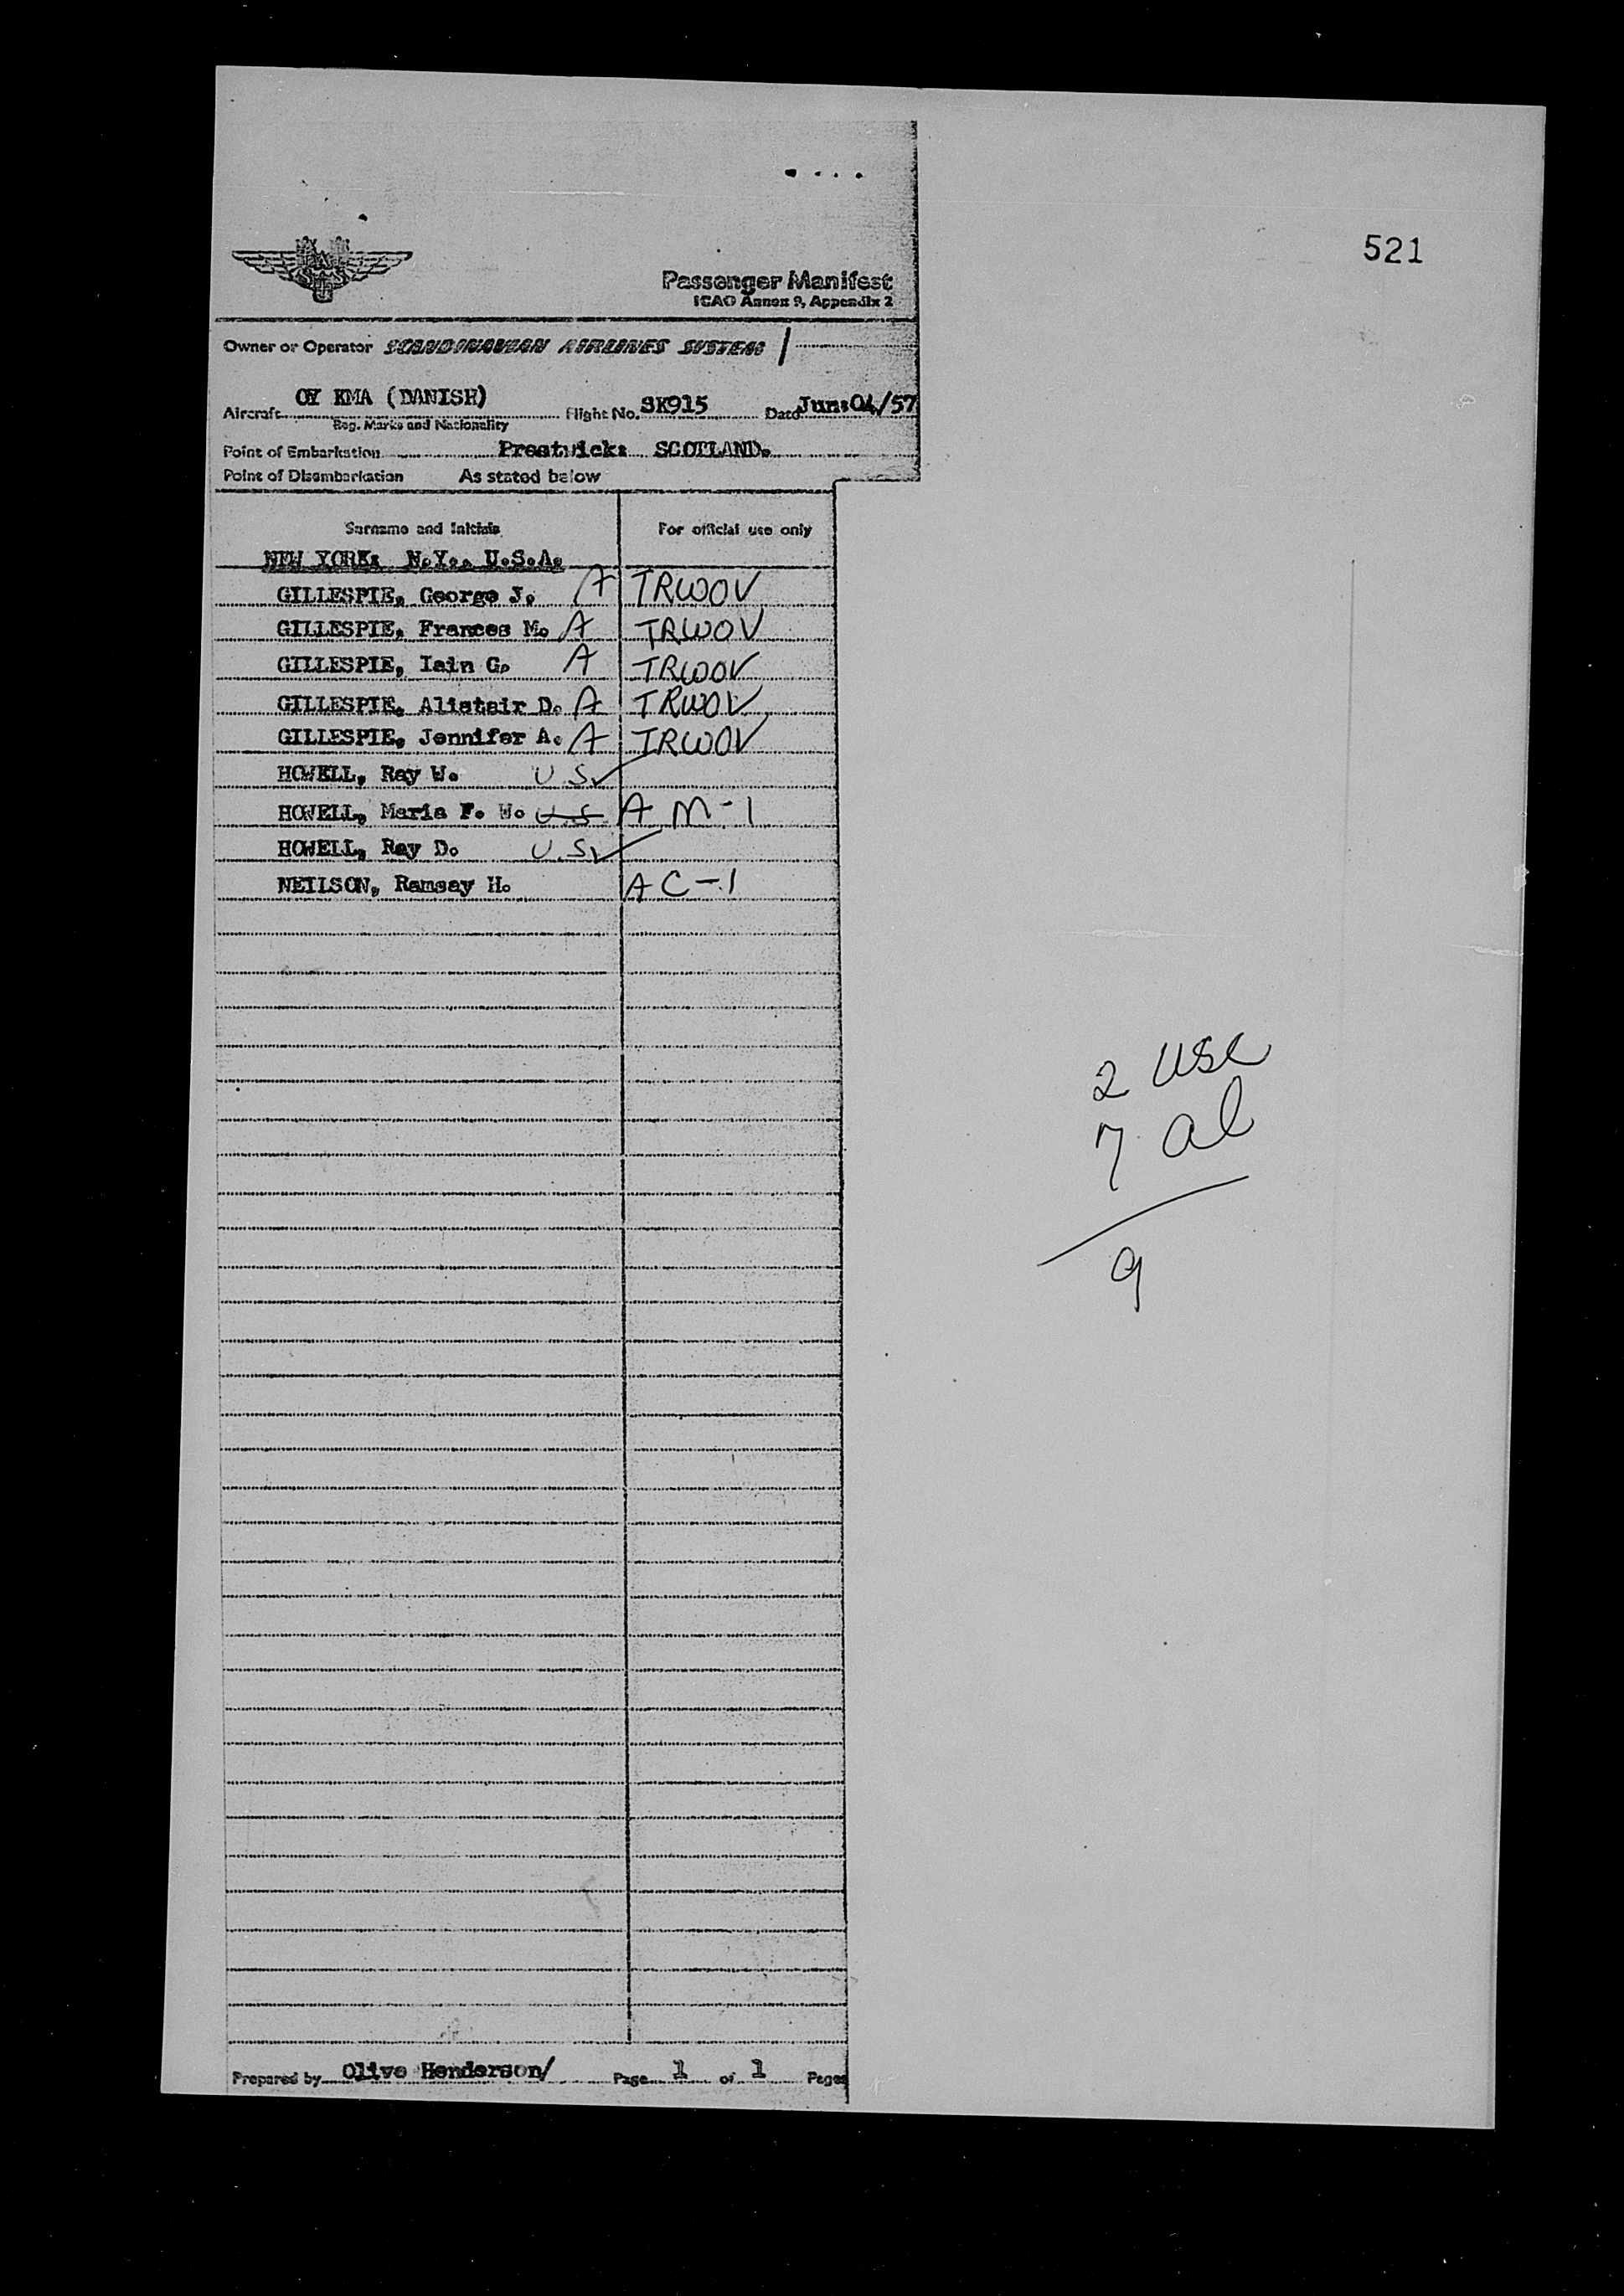 521
SAS
Passenger Manifest
ICAO Annex 9, Appendix 2
Owner or Operator SCANDINAVIAN AIRLINES SYSTEM /
Aircraft OY KMA (DANISH) Flight No. SK915 Date Jun:04/57
Reg. Marks and Nationality
Point of Embarkation Prestwick: SCOTLAND.
Point of Disembarkation As stated below
Surname and Initials For official use only
NEW YORK: N.Y., U.S.A.
GILLESPIE, George J. A TRWOV
GILLESPIE, Frances M. A TRWOV
GILLESPIE, Iain G. A TRWOV
GILLESPIE, Alistair D. A TRWOV
GILLESPIE, Jennifer A. A TRWOV
HOWELL, Ray W. U.S.
HOWELL, Maria F. W. U.S A M-1
HOWELL, Ray D. U.S.
NEILSON, Ramsay H. A C-1
2 USC
7 al
9
Prepared by Olive Henderson/ Page 1 of 1 Pages